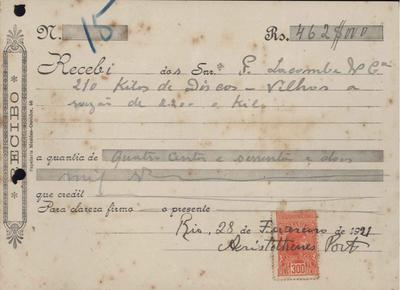 15
N. Rs. 462$000
Recebi dos Snrs. F. Lacombe & Cia
210 Kilos de Discos - Velhos a
razão de 2200 o Kilo
a quantia de Quatro Centos e sessenta e dois
mil
que credit
Para clareza firmo o presente
Rio, 28 de Fevereiro de 1921
Port
RECIBO
300